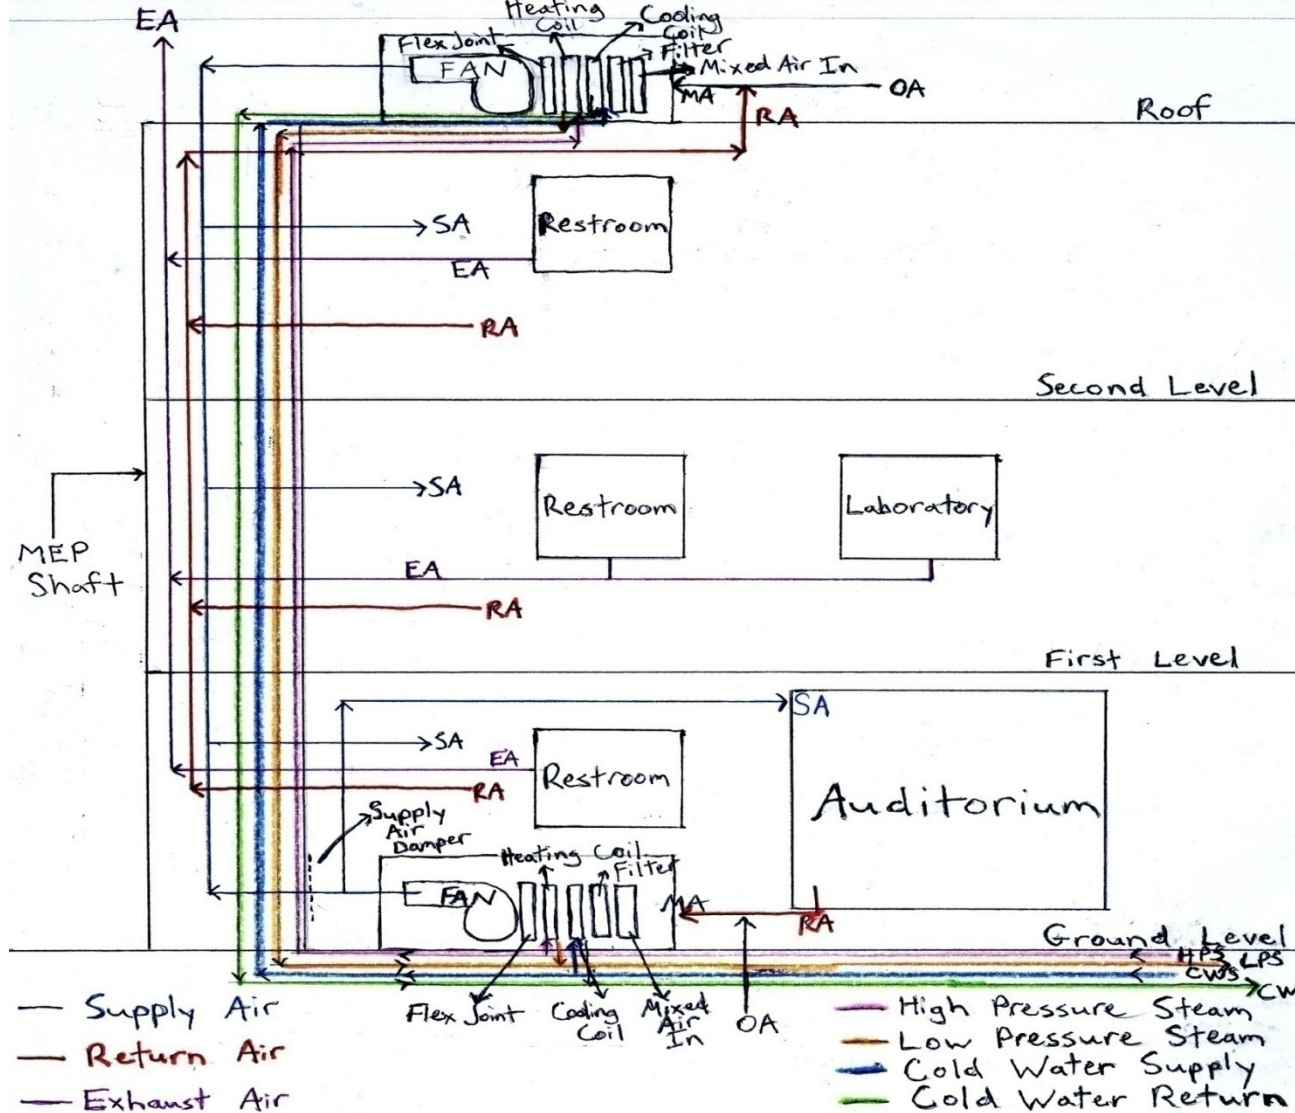 EA
Heating
Coil
Cooling
Coil
Flex Joint
Filter
FAN
Mixed Air In
MA
OA
RA
Roof
SA
Restroom
EA
RA
Second Level
SA
Restroom
Laboratory
MEP
Shaft
EA
RA
First Level
SA
SA
EA
Restroom
RA
Auditorium
Supply
Air
Damper
Heating Coil
Filter
FAN
MA
RA
Ground Level
HPS
LPS
CWS
CW
Flex Joint
Cooling
Coil
Mixed
Air
In
OA
Supply Air
Return Air
Exhaust Air
High Pressure Steam
Low Pressure Steam
Cold Water Supply
Cold Water Return